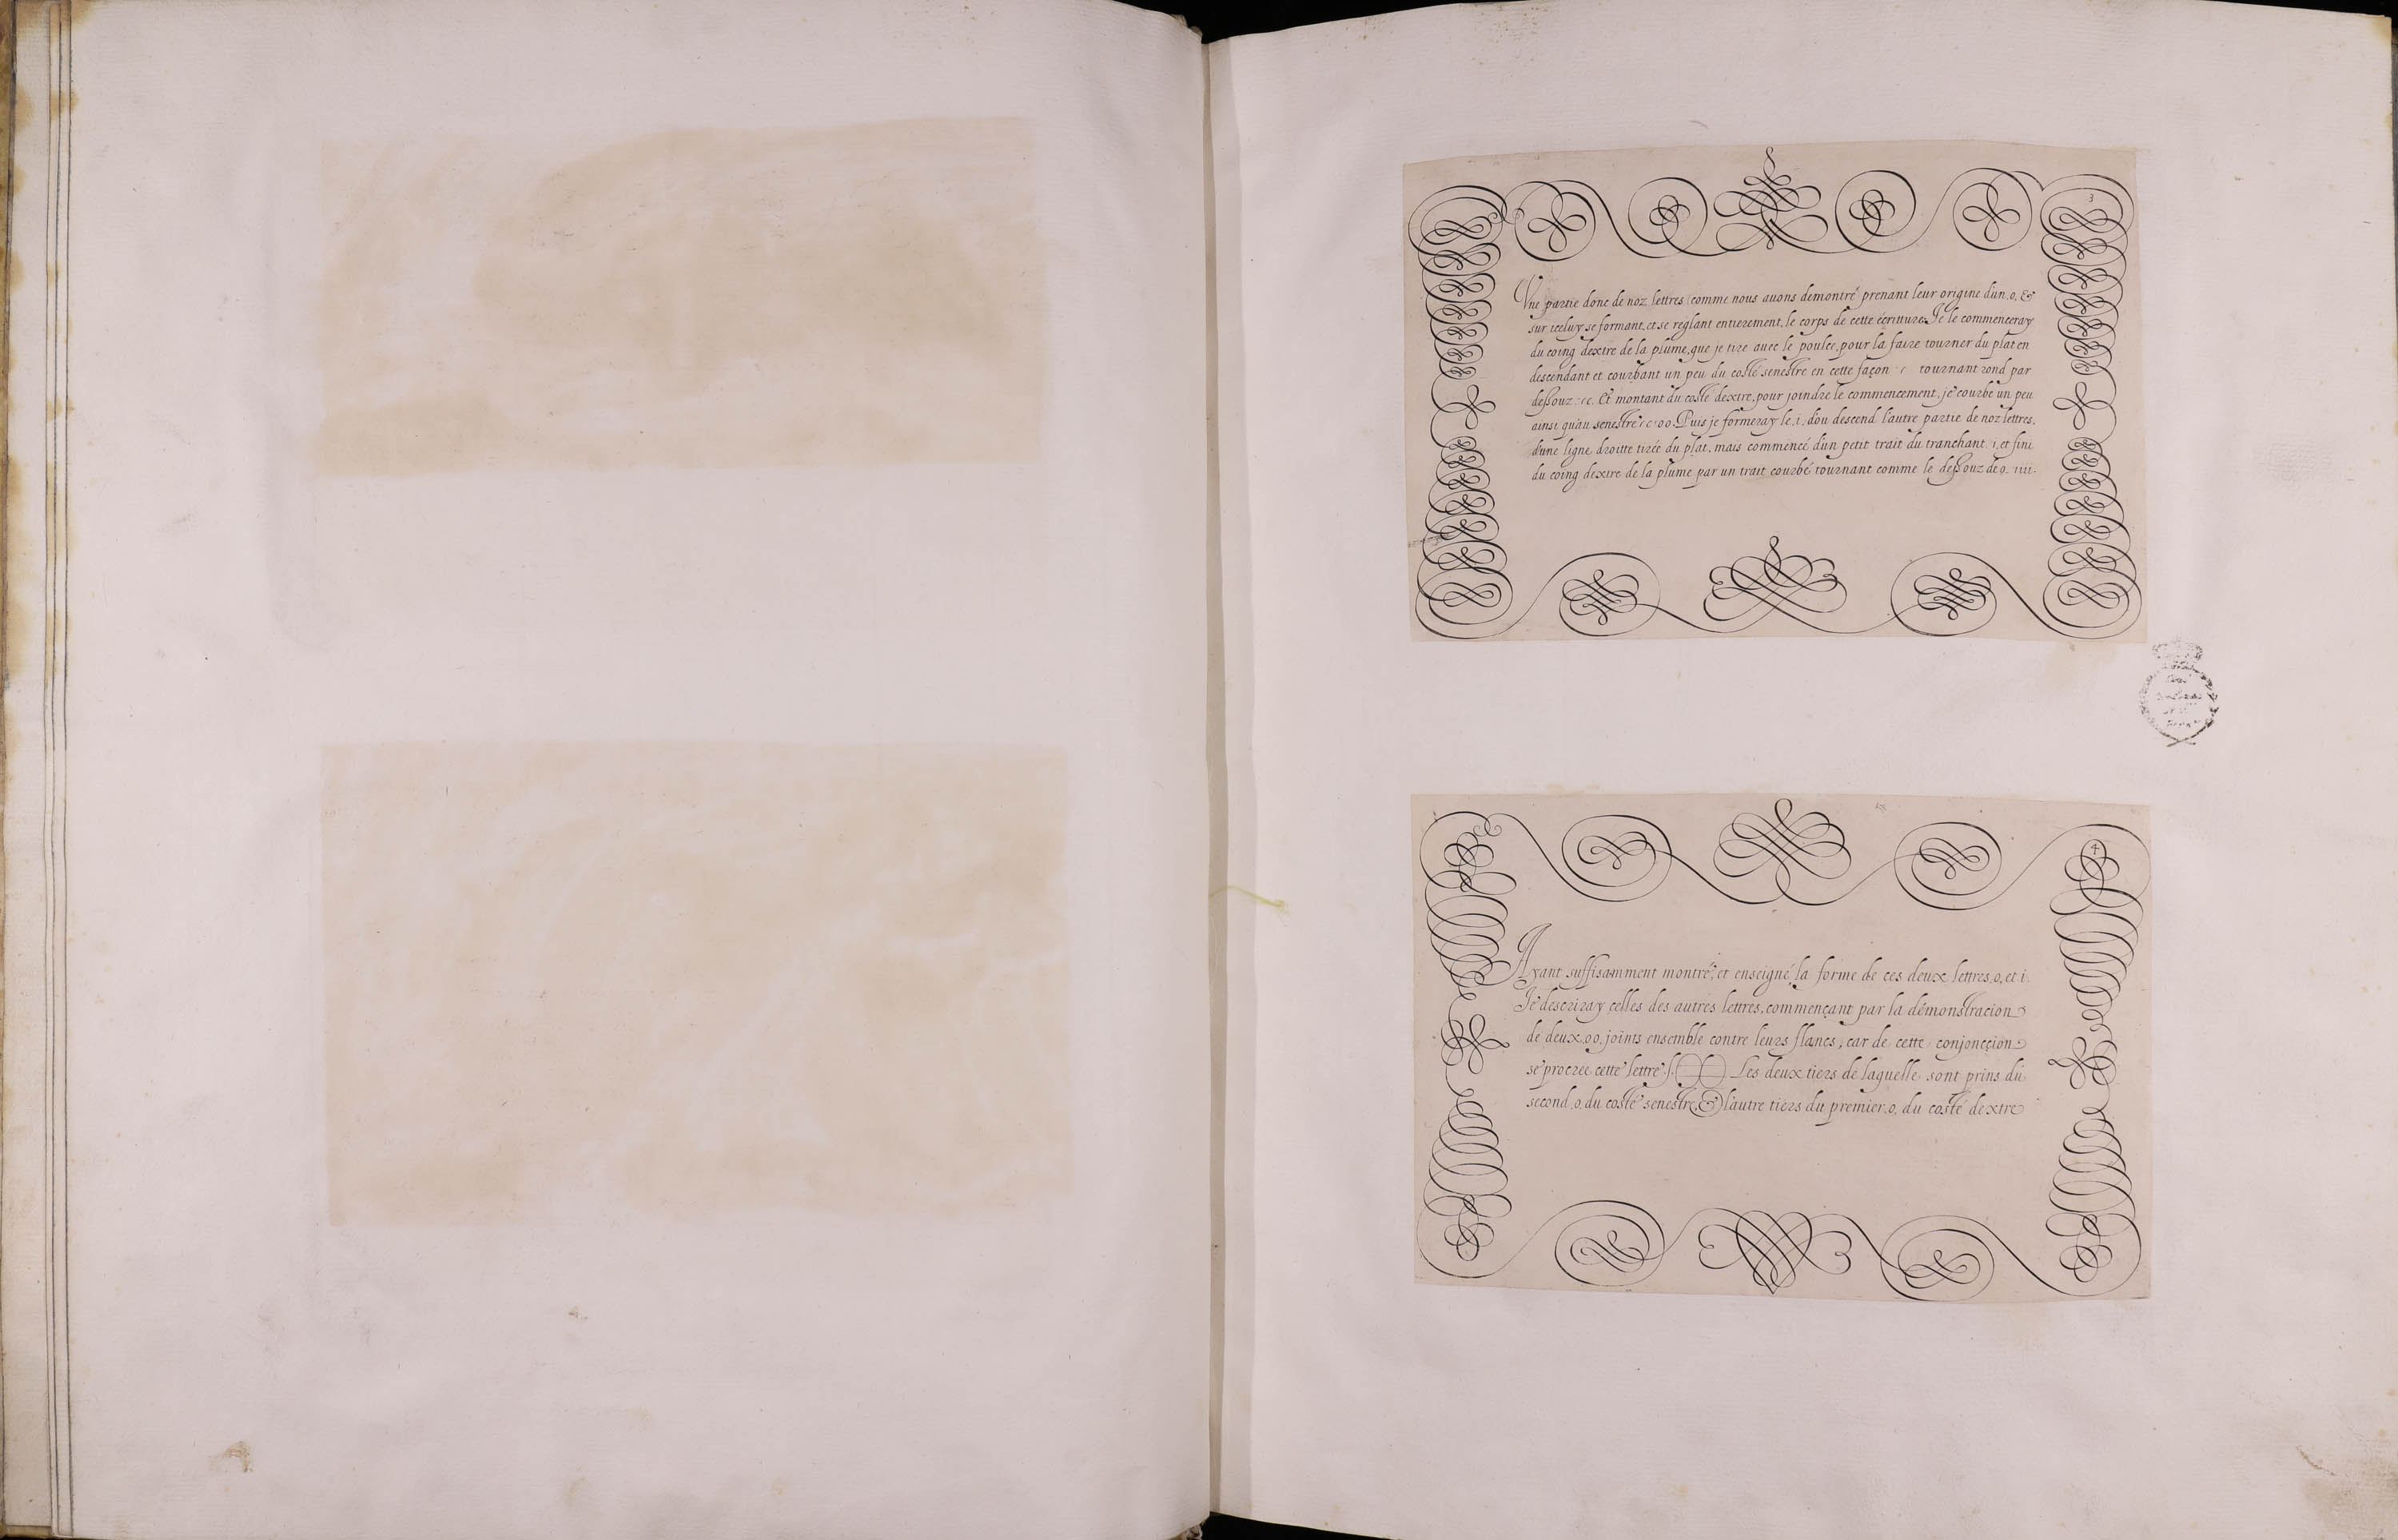 3
Vne partie donc de noz lettres (comme nous auons demontré prenant leur origine d'un .o, &
sur iceluy se formant, et se reglant entierement, le corps de cette écritture. Je le commenceray
du coing dextre de la plume, que je tire auec le poulce, pour la faire tourner du plat en
descendant et courbant un peu du costé senestre en cette façon c tournant rond par
dessouz .cc. Et montant du costé dextre, pour joindre le commencement, je courbe un peu
ainsi qu'au senestre c oo. Puis je formeray le .i. d'ou descend l'autre partie de noz lettres,
d'une ligne droitte tirée du plat, mais commencé d'un petit trait du tranchant .ı, et fini
du coing dextre de la plume par un trait courbé tournant comme le dessouz de o. ıııı.
4
Ayant suffisamment montré, et enseigné la forme de ces deux lettres, o, et i.
Je descriray celles des autres lettres, commençant par la démonstracion
de deux .oo. joints ensemble contre leurs flancs, car de cette conjoncçion
se procree cette lettre ſ. Les deux tiers de laquelle sont prins du
second .o. du costé senestre, & l'autre tiers du premier .o. du costé dextre